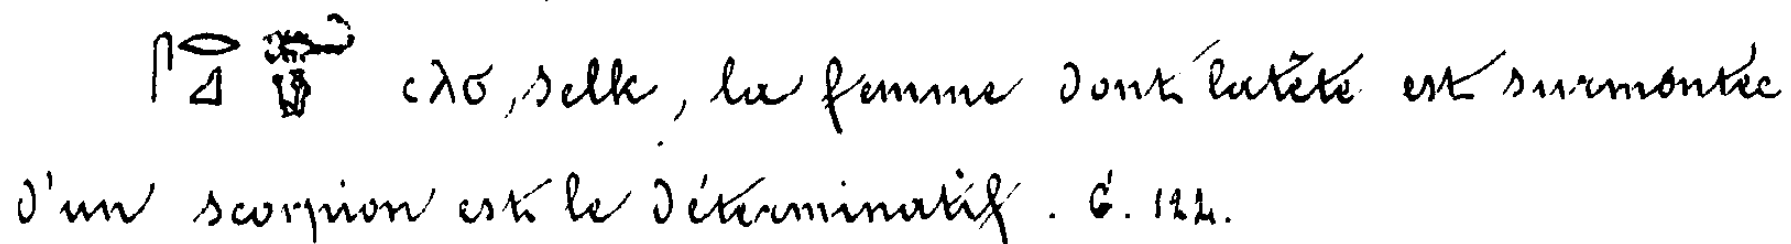 𓋴𓂋𓈎 ⲥⲗϭ, selk, la femme dont la tête est surmontée
d'un scorpion est le déterminatif. G. 122.